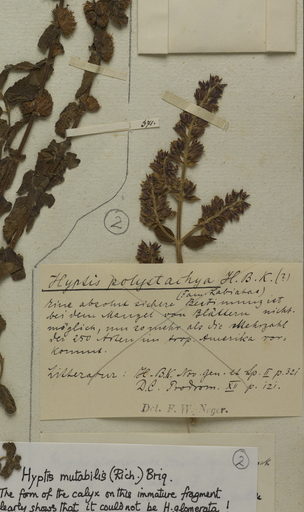 371.
2
Hyptis polystachya H.B.K. (?)
(Fam. Labiatae)
Eine absolut sichere Bestimmung ist
bei dem Mangel von Blättern nicht
möglich, um so mehr, als die Mehrzahl
der 250 Arten im trop. Amerika vor-
kommt.
Litteratur: H.B.K. Nov. gen. et sp. II p. 321
D.C. Prodrom. XII p. 121.
Det. F. W. Neger.
2
Hyptis mutabilis (Rich.) Briq.
The form of the calyx on this immature fragment
clearly shows that it could not be H. glomerata !